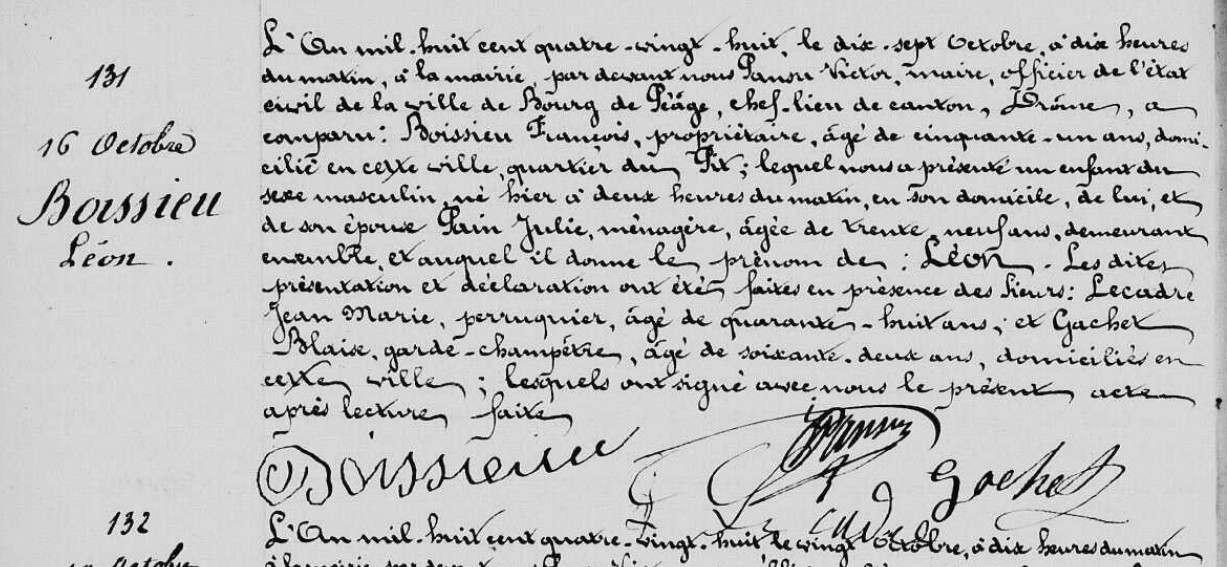 131
16 Octobre
Boissieu
Léon.
L'An mil-huit cent quatre-vingt-huit, le dix-sept Octobre, à dix heures
du matin, à la mairie, par devant nous Pansu Victor, maire, officier de l'état
civil de la ville de Bourg de Péage, chef-lieu de canton, Drôme, a
comparu: Boissieu François, propriétaire, âgé de cinquante-un ans, domi-
cilié en cette ville, quartier du Pit; lequel nous a présenté un enfant du
sexe masculin, né hier à deux heures du matin, en son domicile, de lui, et
de son épouse Pain Julie, ménagère, âgée de trente-neuf ans, demeurant
ensemble, et auquel il donne le prénom de: Léon. Les dites
présentation et déclaration ont été faites en présence des Sieurs: Lecadre
Jean Marie, perruquier, âgé de quarante-huit ans, et Gachet
Blaise, garde-champêtre, âgé de soixante-deux ans, domiciliés en
cette ville; lesquels ont signé avec nous le présent acte
après lecture faite
Boissieu Pansu Gachet
132
L'An mil-huit cent quatre-vingt-huit, le vingt Octobre, à dix heures du matin
Octobre à la mairie, par devant nous Pansu Victor